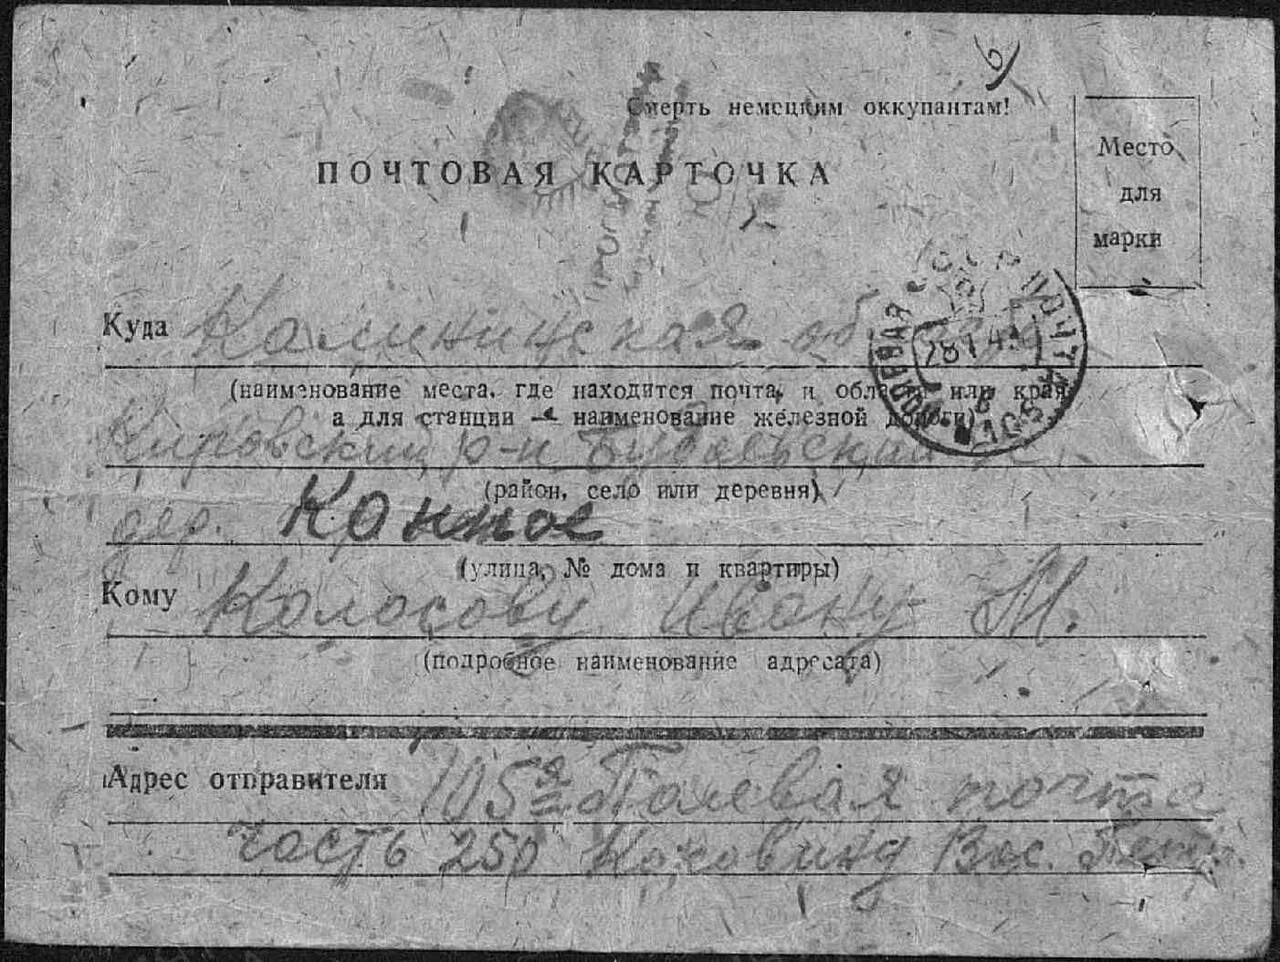 Смерть немецким оккупантам!
ПОЧТОВАЯ КАРТОЧКА
Место
для
марки
Куда Калининская
(наименование места, где находится почта, и области или края
а для станции — наименование железной дороги)
Кировский р-н
(район, село или деревня)
дер.
(улица, № дома и квартиры)
Кому Колосову Ивану М.
(подробное наименование адресата)
Адрес отправителя 105я Полевая почта
часть 250 Вас.